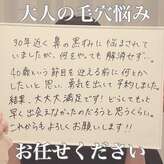 大人の毛穴悩み
30年近く鼻の黒ずみに悩まされて
いましたが、何をやっても解消せず…。
40歳という節目を迎える前に何とか
したいと思い、勇気を出して予約しました。
結果、大大大満足です！どうしてもっと
早く出会えなかったのだろうと思うくらい。
これからもよろしくお願いします!!
お任せください